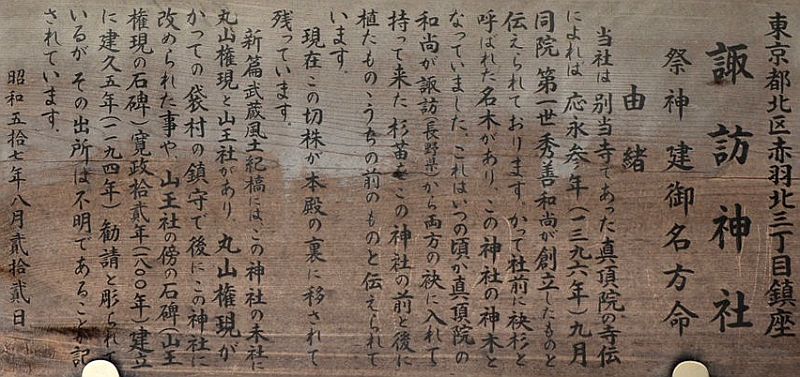 東京都北区赤羽北三丁目鎮座
諏訪神社
祭神 建御名方命
由緒
当社は別当寺であった真頂院の寺伝
によれば 応永参年(一三九六年)九月
同院 第一世秀善和尚が創立したものと
伝えられております。かって社前に袂杉と
呼ばれた名木があり、この神社の神木と
なっていました。これはいつの頃か真頂院の
和尚が諏訪(長野県)から両方の袂に入れて
持って来た杉苗をこの神社の前と後に
植たものゝうちの前のものと伝えられて
います。
現在この切株が本殿の裏に移されて
残っています。
新篇武蔵風土紀稿にはこの神社の末社に
丸山権現と山王社があり 丸山権現が
かっての袋村の鎮守で後にこの神社に
改められた事や、山王社の傍の石碑(山王
権現の石碑)寛政拾貳年(一八〇〇年)建立
に建久五年(一一九四年)勧請と彫られて
いるが その出所は不明であることが記
されています。
昭和五拾七年八月貳拾貳日